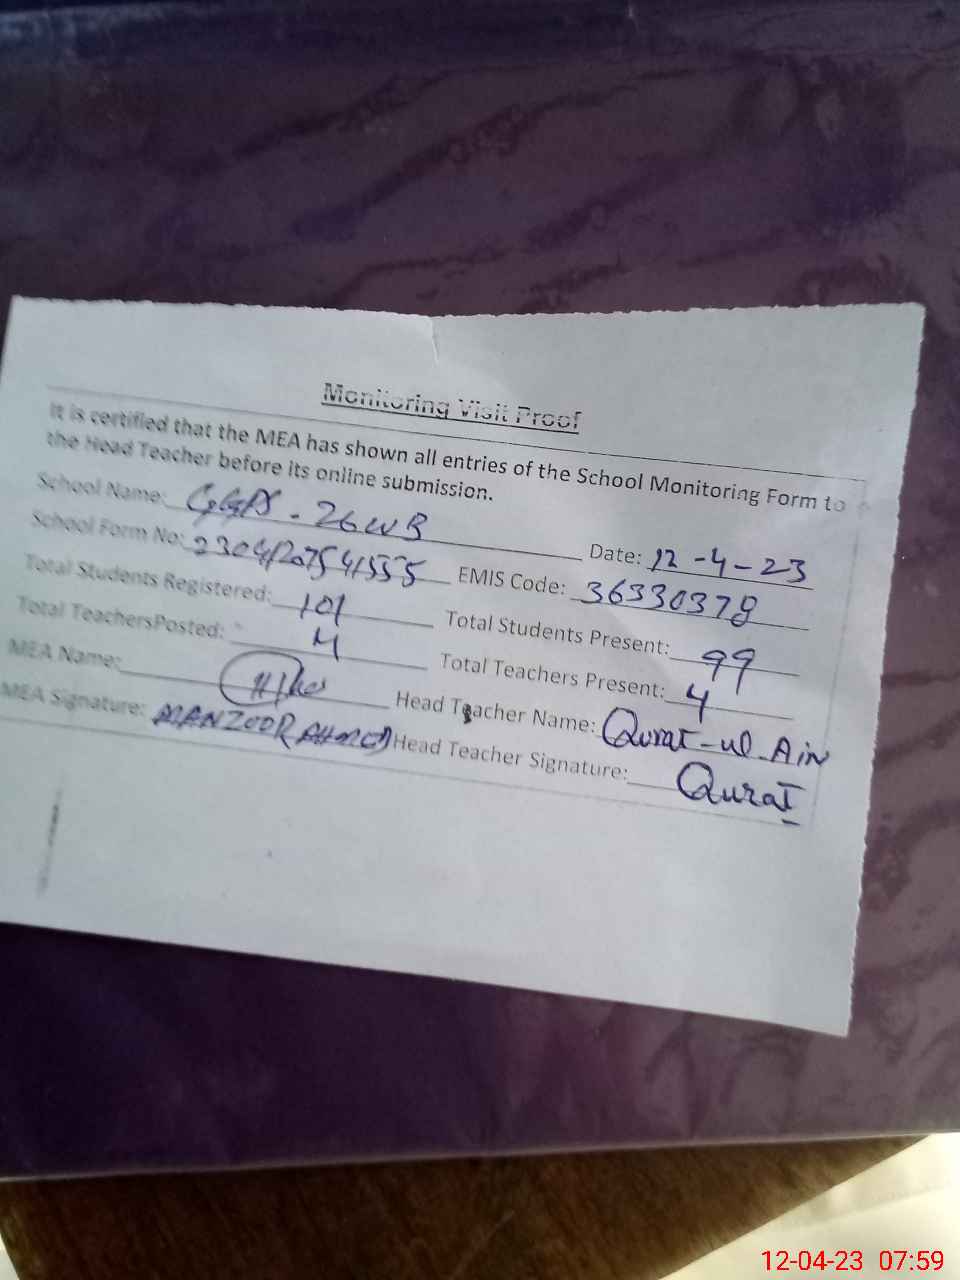 Monitoring Visit Proof
It is certified that the MEA has shown all entries of the School Monitoring Form to
the Head Teacher before its online submission.
School Name: GGPS - 26WB Date: 12-4-23
School Form No: EMIS Code: 36330378
Total Students Registered: 101 Total Students Present: 99
Total TeachersPosted: 4 Total Teachers Present: 4
MEA Name: Head Teacher Name: Qurat-ul-Ain
MEA Signature: MANZOOR AHMED Head Teacher Signature: Qurat
12-04-23 07:59